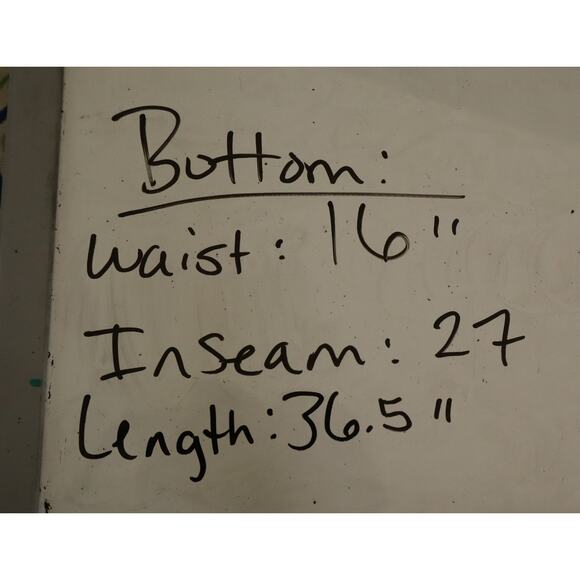 Bottom:
Waist: 16"
Inseam: 27
Length: 36.5"